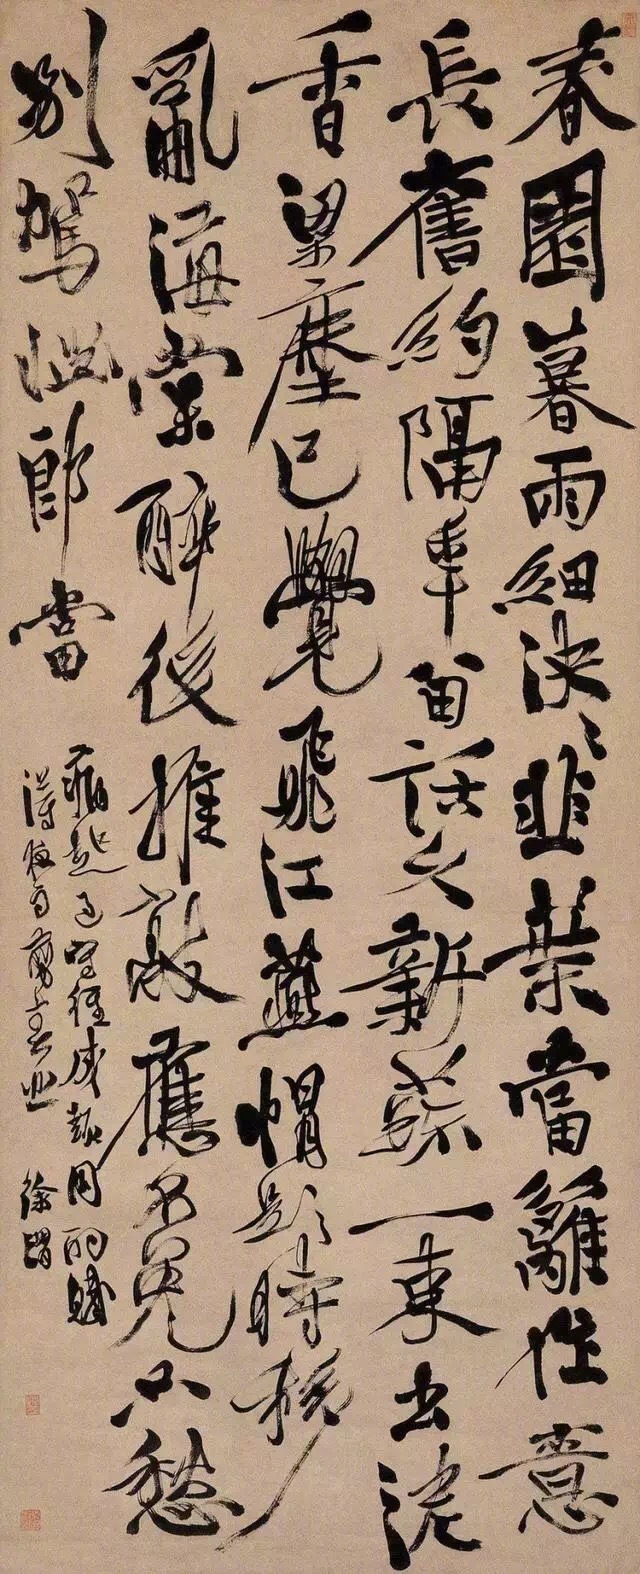 春園暮雨細泱〻韭葉當籬作意
長舊約隔年留話久新蔬一束出泥
香梁塵已覺飛江燕帽影時移
亂海棠醉後推敲應不免不愁
別駕惱郎當
病起過
得夜雨剪春韭 徐渭